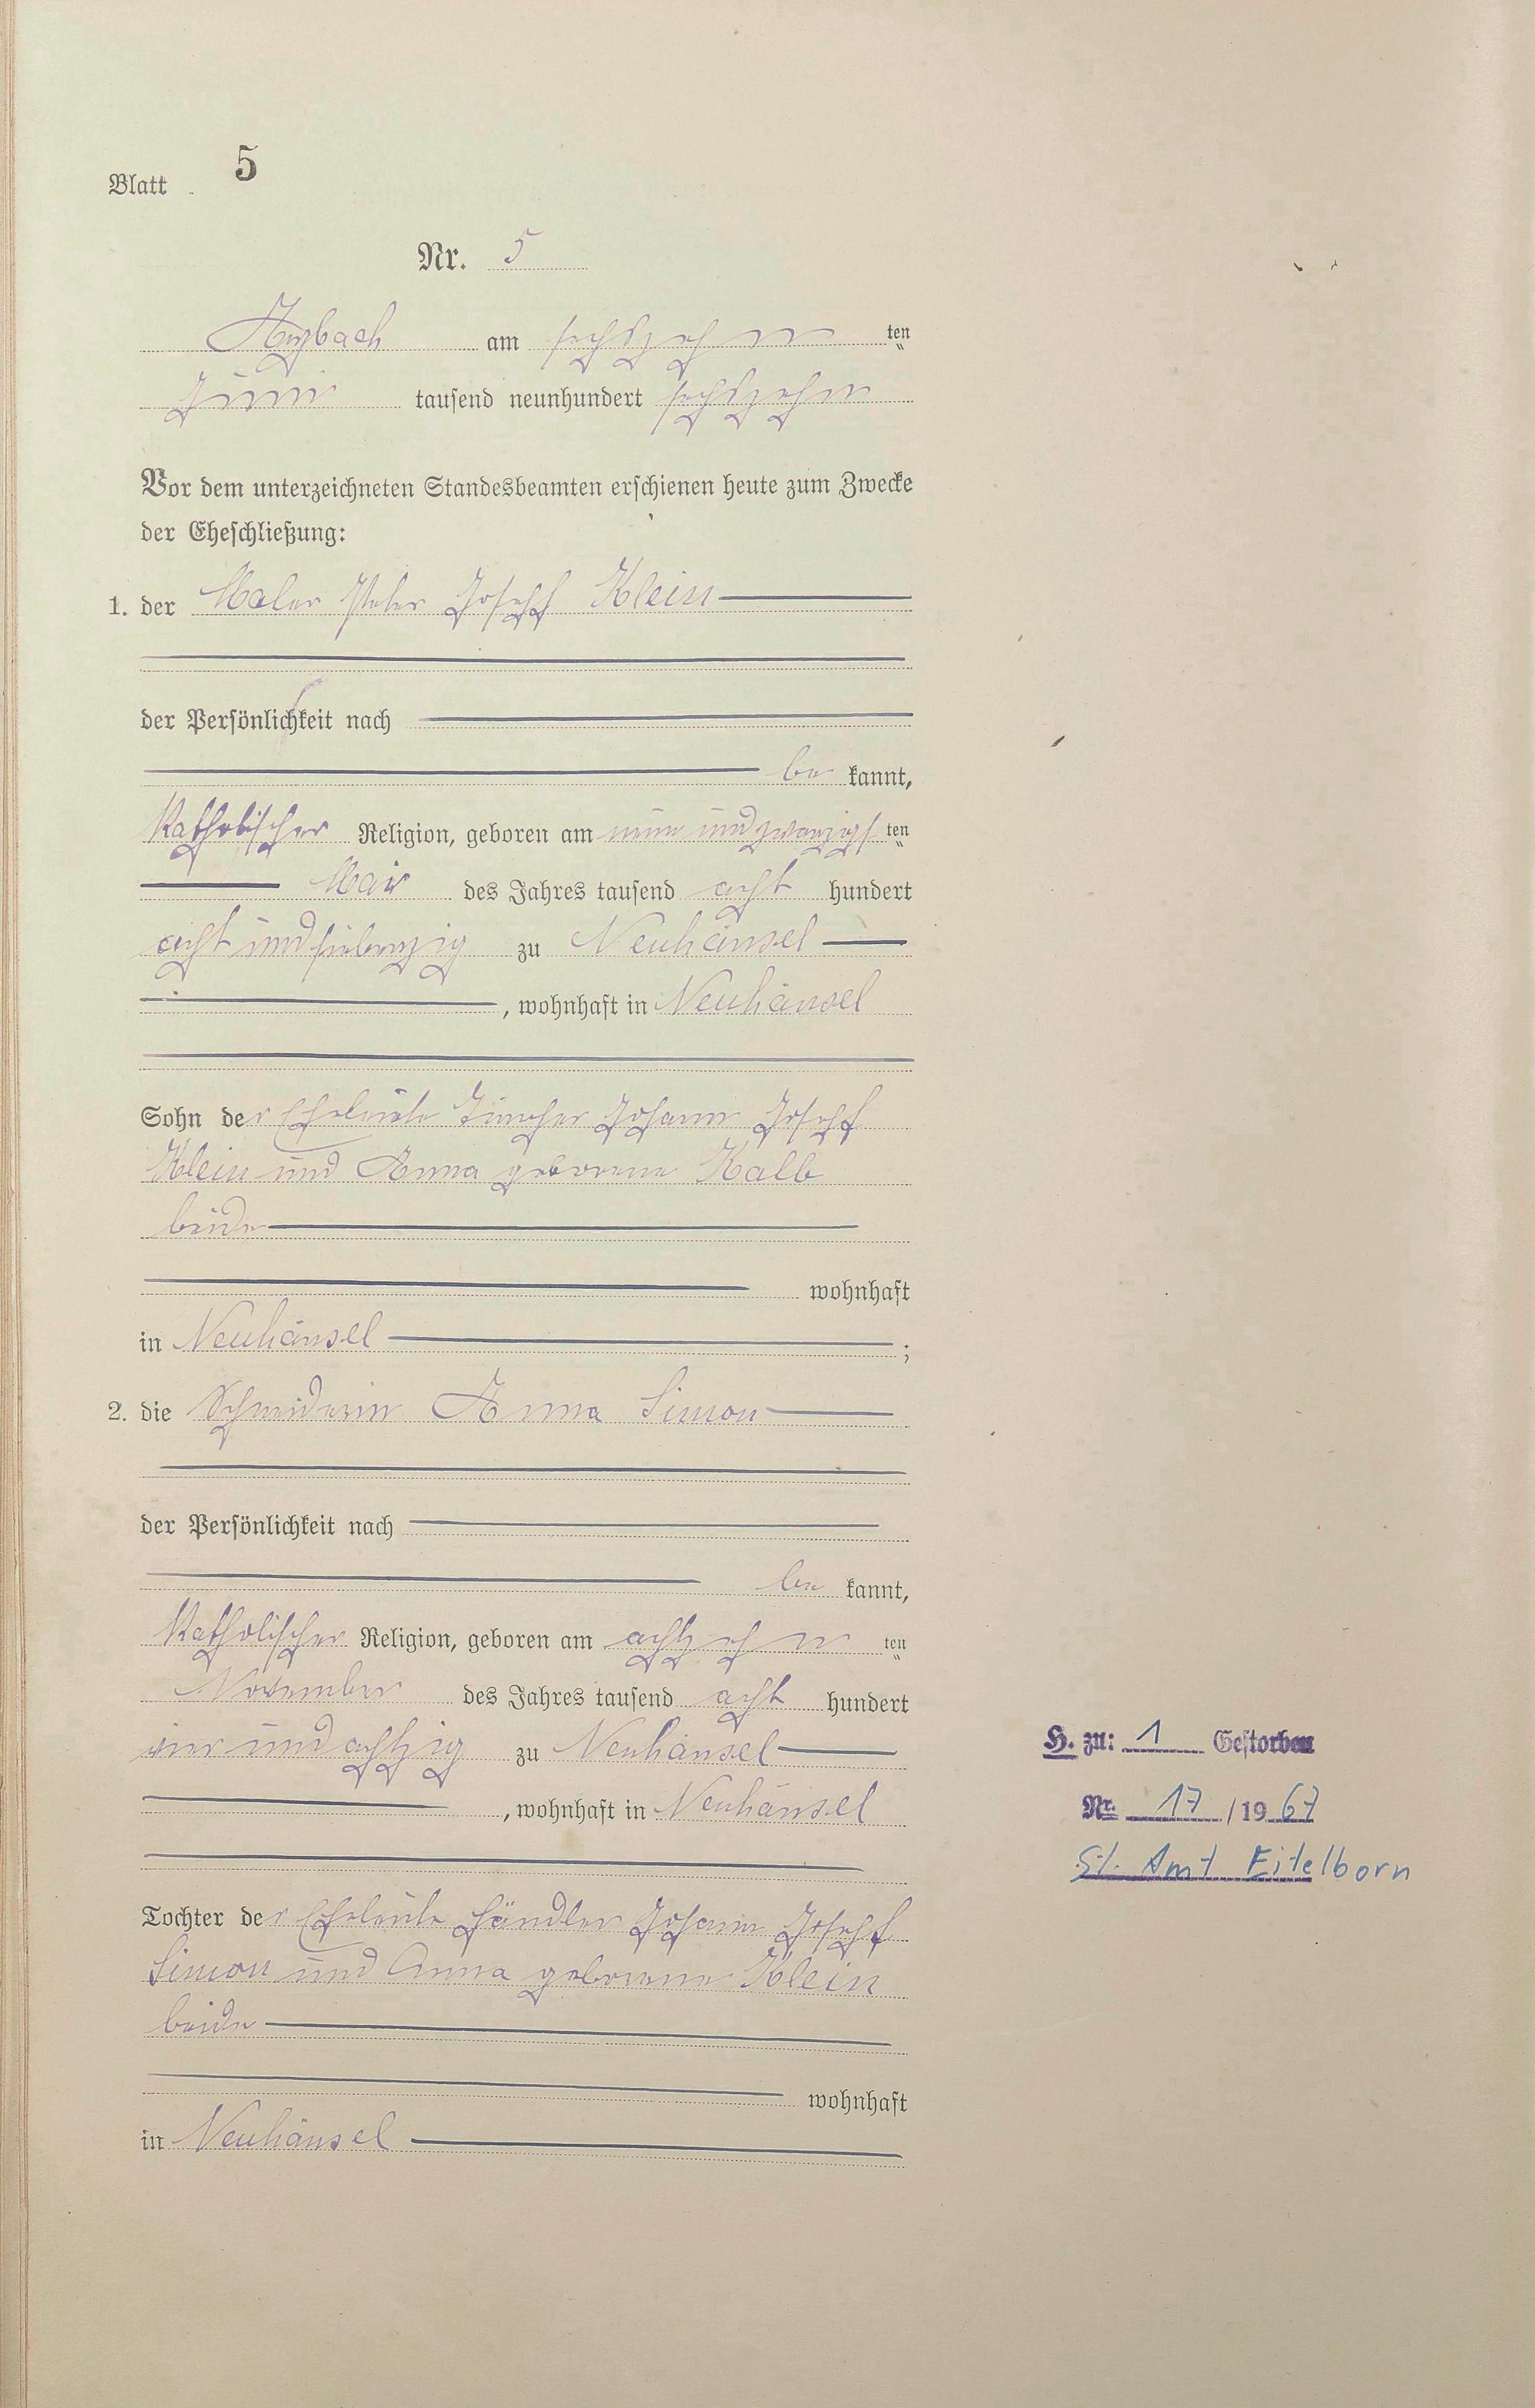 Blatt 5
Nr. 5
Arzbach am sechszehn ten
Juni tausend neunhundert sechszehn
Vor dem unterzeichneten Standesbeamten erschienen heute zum Zwecke
der Eheschließung:
1. der Maler Peter Joseph Klein
der Persönlichkeit nach
be kannt,
Katholischer Religion, geboren am neun und zwanzigs ten
Mai des Jahres tausend acht hundert
acht und siebenzig zu Neuhäusel
, wohnhaft in Neuhäusel
Sohn der Eheleute Tüncher Johann Joseph
Klein und Anna geborene Kalb
beide
wohnhaft
in Neuhäusel ;
2. die Schneiderin Anna Simon
der Persönlichkeit nach
be kannt,
Katholischer Religion, geboren am achtzehn ten
November des Jahres tausend acht hundert
vier und achtzig zu Neuhäusel
, wohnhaft in Neuhäusel
Tochter der Eheleute Händler Johann Joseph
Simon und Anna geborene Klein
beide
wohnhaft
in Neuhäusel
H. zu: 1 Gestorben
Nr. 17 /19 67
St. Amt Eitelborn